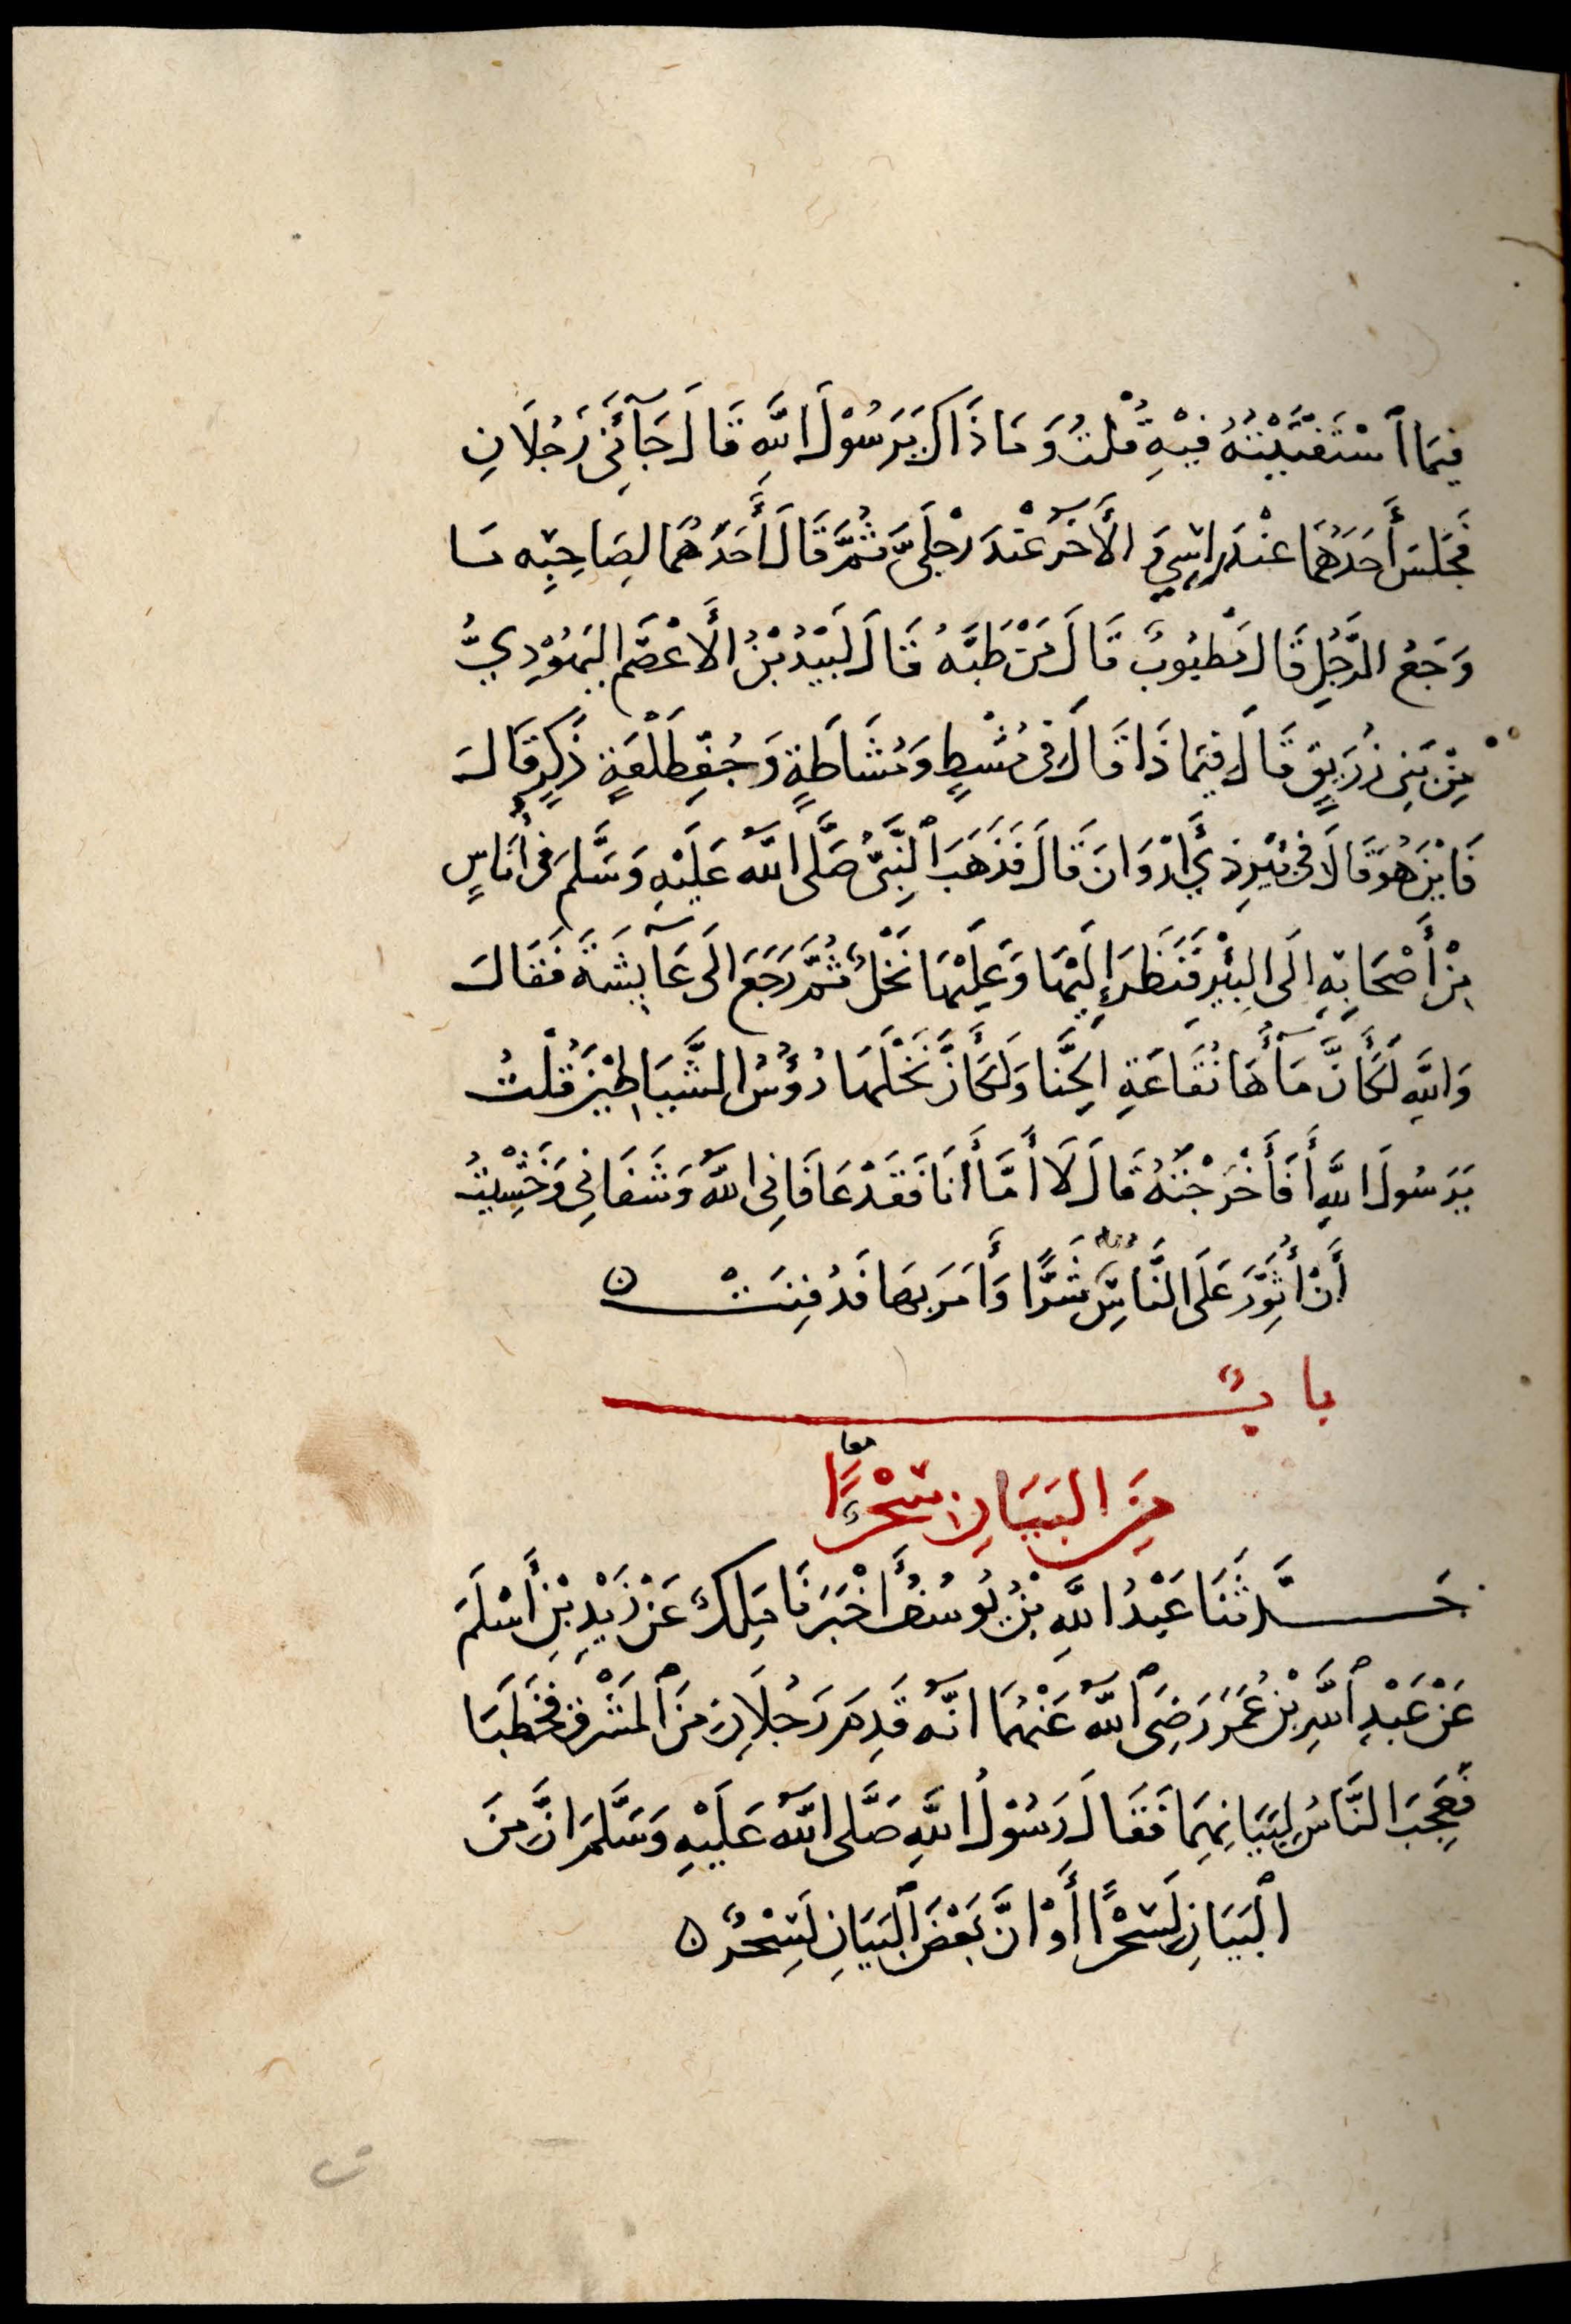 فِيمَا ٱسْتَفْتَيْتُهُ فِيْهِ قُلْتُ وَمَا ذَاكَ يَرَسُوْلَ اللَّهِ قَالَ جَآئَنِي رَجُلَانِ
فَجَلَسَ أَحَدُهُمَا عِنْدَ رَاسِي وَ الْأَخَرُ عِنْدَ رِجْلَيَّ ثُمَّ قَالَ أَحَدُهُمَا لِصَاحِبِه مَا
وَجَعُ الرَّجُلِ قَالَ مَطْبُوبٌ قَالَ مَنْ طَبَّهُ قَالَ لَبِيْدُ بْنُ الْأَعْصَمِ اليَهُوْدِيُّ
مِنْ بَنِي زُرَيقٍ قَالَ فِيمَا ذَا قَالَ فِي مُشْطٍ وَمُشَاطَةٍ وَجُفِّ طَلْعَةٍ ذَكَرٍ قَالَ
فَايْنَ هُوَ قَالَ فِي بِئْرِ ذِي أَرْوَانَ قَالَ فَذَهَبَ ٱلنَّبِيُّ صَلَّى اللَّهُ عَلَيْهِ وَسَلَّمَ فِي أُنَاسٍ
مِنْ أَصْحَابِهِ الَى البِئْرِ فَنَظَرَ إِلَيْهَا وَعَلَيْهَا نَخْلٌ ثُمَّ رَجَعَ الَى عَآيِشَةَ فَقَالَ
وَاللَّهِ لَكَأَنَّ مَآأَهَا نُقَاعَةِ الحِنَّا وَلَكَأَنَّ نَخْلَهَا رُؤُسُ الشَّيَاطِيْنِ قُلْتُ
يَرَسُولَ اللَّهِ أَفَأَخْرَجْتَهُ قَالَ لَا أَمَّا أَنَا فَقَدْ عَافَانِي اللَّهُ وَشَفَانِي وَخَشِيْتُ
أَنْ أُثَوِّرَ عَلَى النَّاسِ شَرًّا وَأَمَرَ بِهَا فَدُفِنَتْ ن
بابٌ
مِنَ البَيَانِ سِحْرًا
حَدَّثَنَا عَبْدُ اللَّهِ بْنُ يُوسُفَ أَخْبَرَنَا مٰلِكٌ عَنْ زَيْدِ بْنِ أَسْلَمَ
عَنْ عَبْدِ ٱللَّهِ بْنِ عُمَرَ رَضِيَ ٱللَّهُ عَنْهُمَا انَّهُ قَدِمَ رَجُلَانِ مِنَ ٱلمَشْرِقِ فَخَطَبَا
فَعَجِبَ النَّاسُ لِبَيَانِهِمَا فَقَالَ رَسُوْلُ اللَّهِ صَلَّى اللَّهُ عَلَيْهِ وَسَلَّمَ انَّ مِنَ
ٱلبَيَانِ لَسِحْرًا أَوْ انَّ بَعْضَ ٱلبَيَانِ لَسِحْرٌ ن